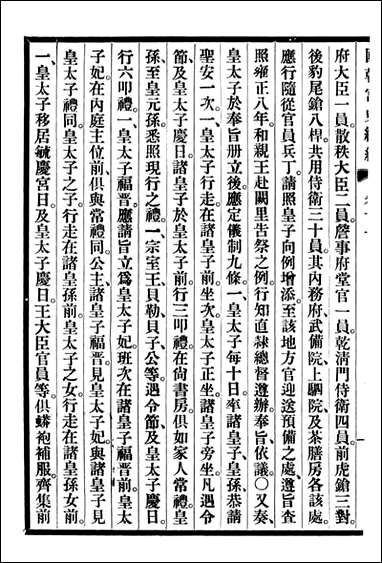 府大臣一員。散秩大臣二員。詹事府堂官一員。乾清門侍衞四員。前虎鎗三對。
後豹尾鎗八桿。共用侍衞三十員。其內務府、武備院、上駟院、及茶膳房各該處。
應行隨從官員兵丁。請照皇子向例增添。至該地方官迎送預備之處。遵旨查
照雍正八年和親王赴闕里告祭之例。行知直隸總督遵辦。奉旨、依議。○又奏、
皇太子於奉旨册立後。應定儀制九條。一、皇太子每十日。率諸皇子、皇孫恭請
聖安一次。一、皇太子行走在諸皇子前。坐次。皇太子正坐。諸皇子旁坐。凡遇令
節、及皇太子慶日。諸皇子於皇太子前。行三叩禮。在尚書房。俱如家人常禮。皇
孫、至皇元孫。悉照現行之禮。一、宗室王、貝勒、貝子、公等。遇令節、及皇太子慶日。
行六叩禮。一、皇太子福晉。應請旨立爲皇太子妃。班次在諸皇子福晉前。皇太
子妃在內庭主位前。俱與常禮同。公主、諸皇子福晉。見皇太子妃。與諸皇子見
皇太子禮同。皇太子之子。行走在諸皇孫前。皇太子之女。行走在諸皇孫女前。
一、皇太子移居毓慶宮日。及皇太子慶日。王大臣官員等。俱蟒袍補服。齊集前